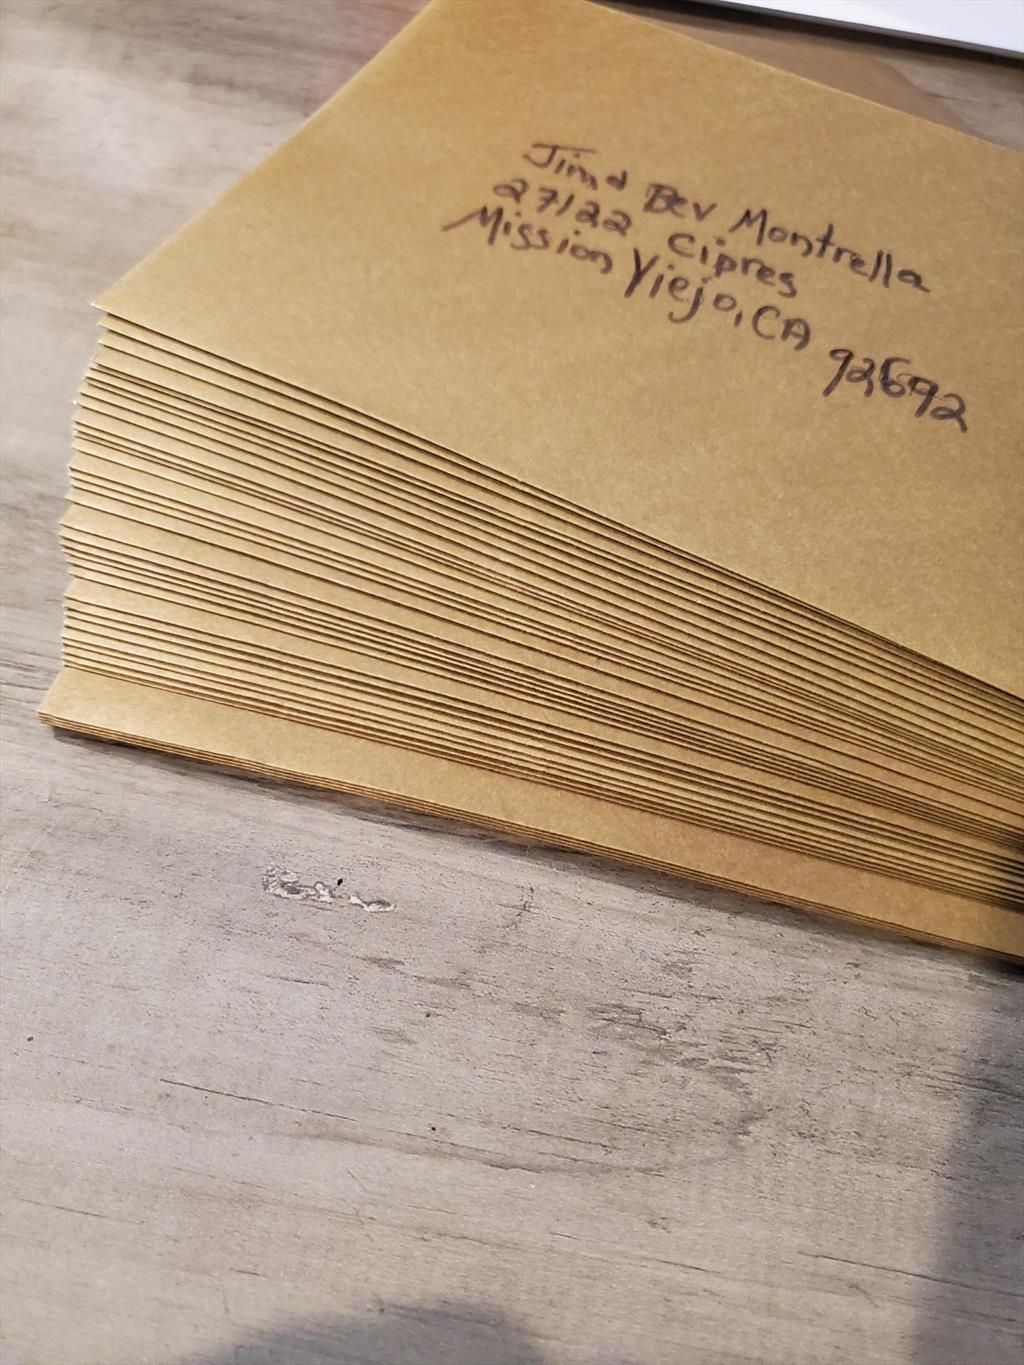 Jim & Bev Montrella
27122 Cipres
Mission Viejo, CA 92692